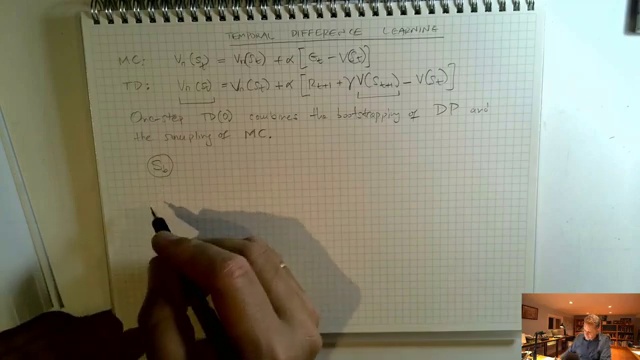 TEMPORAL DIFFERENCE LEARNING
MC: Vπ(St) = Vπ(St) + α [Gt − V(St)]
TD: Vπ(St) = Vπ(St) + α [Rt+1 + γV(St+1) − V(St)]
One-step TD(0) combines the bootstrapping of DP and
the sampling of MC.
S0